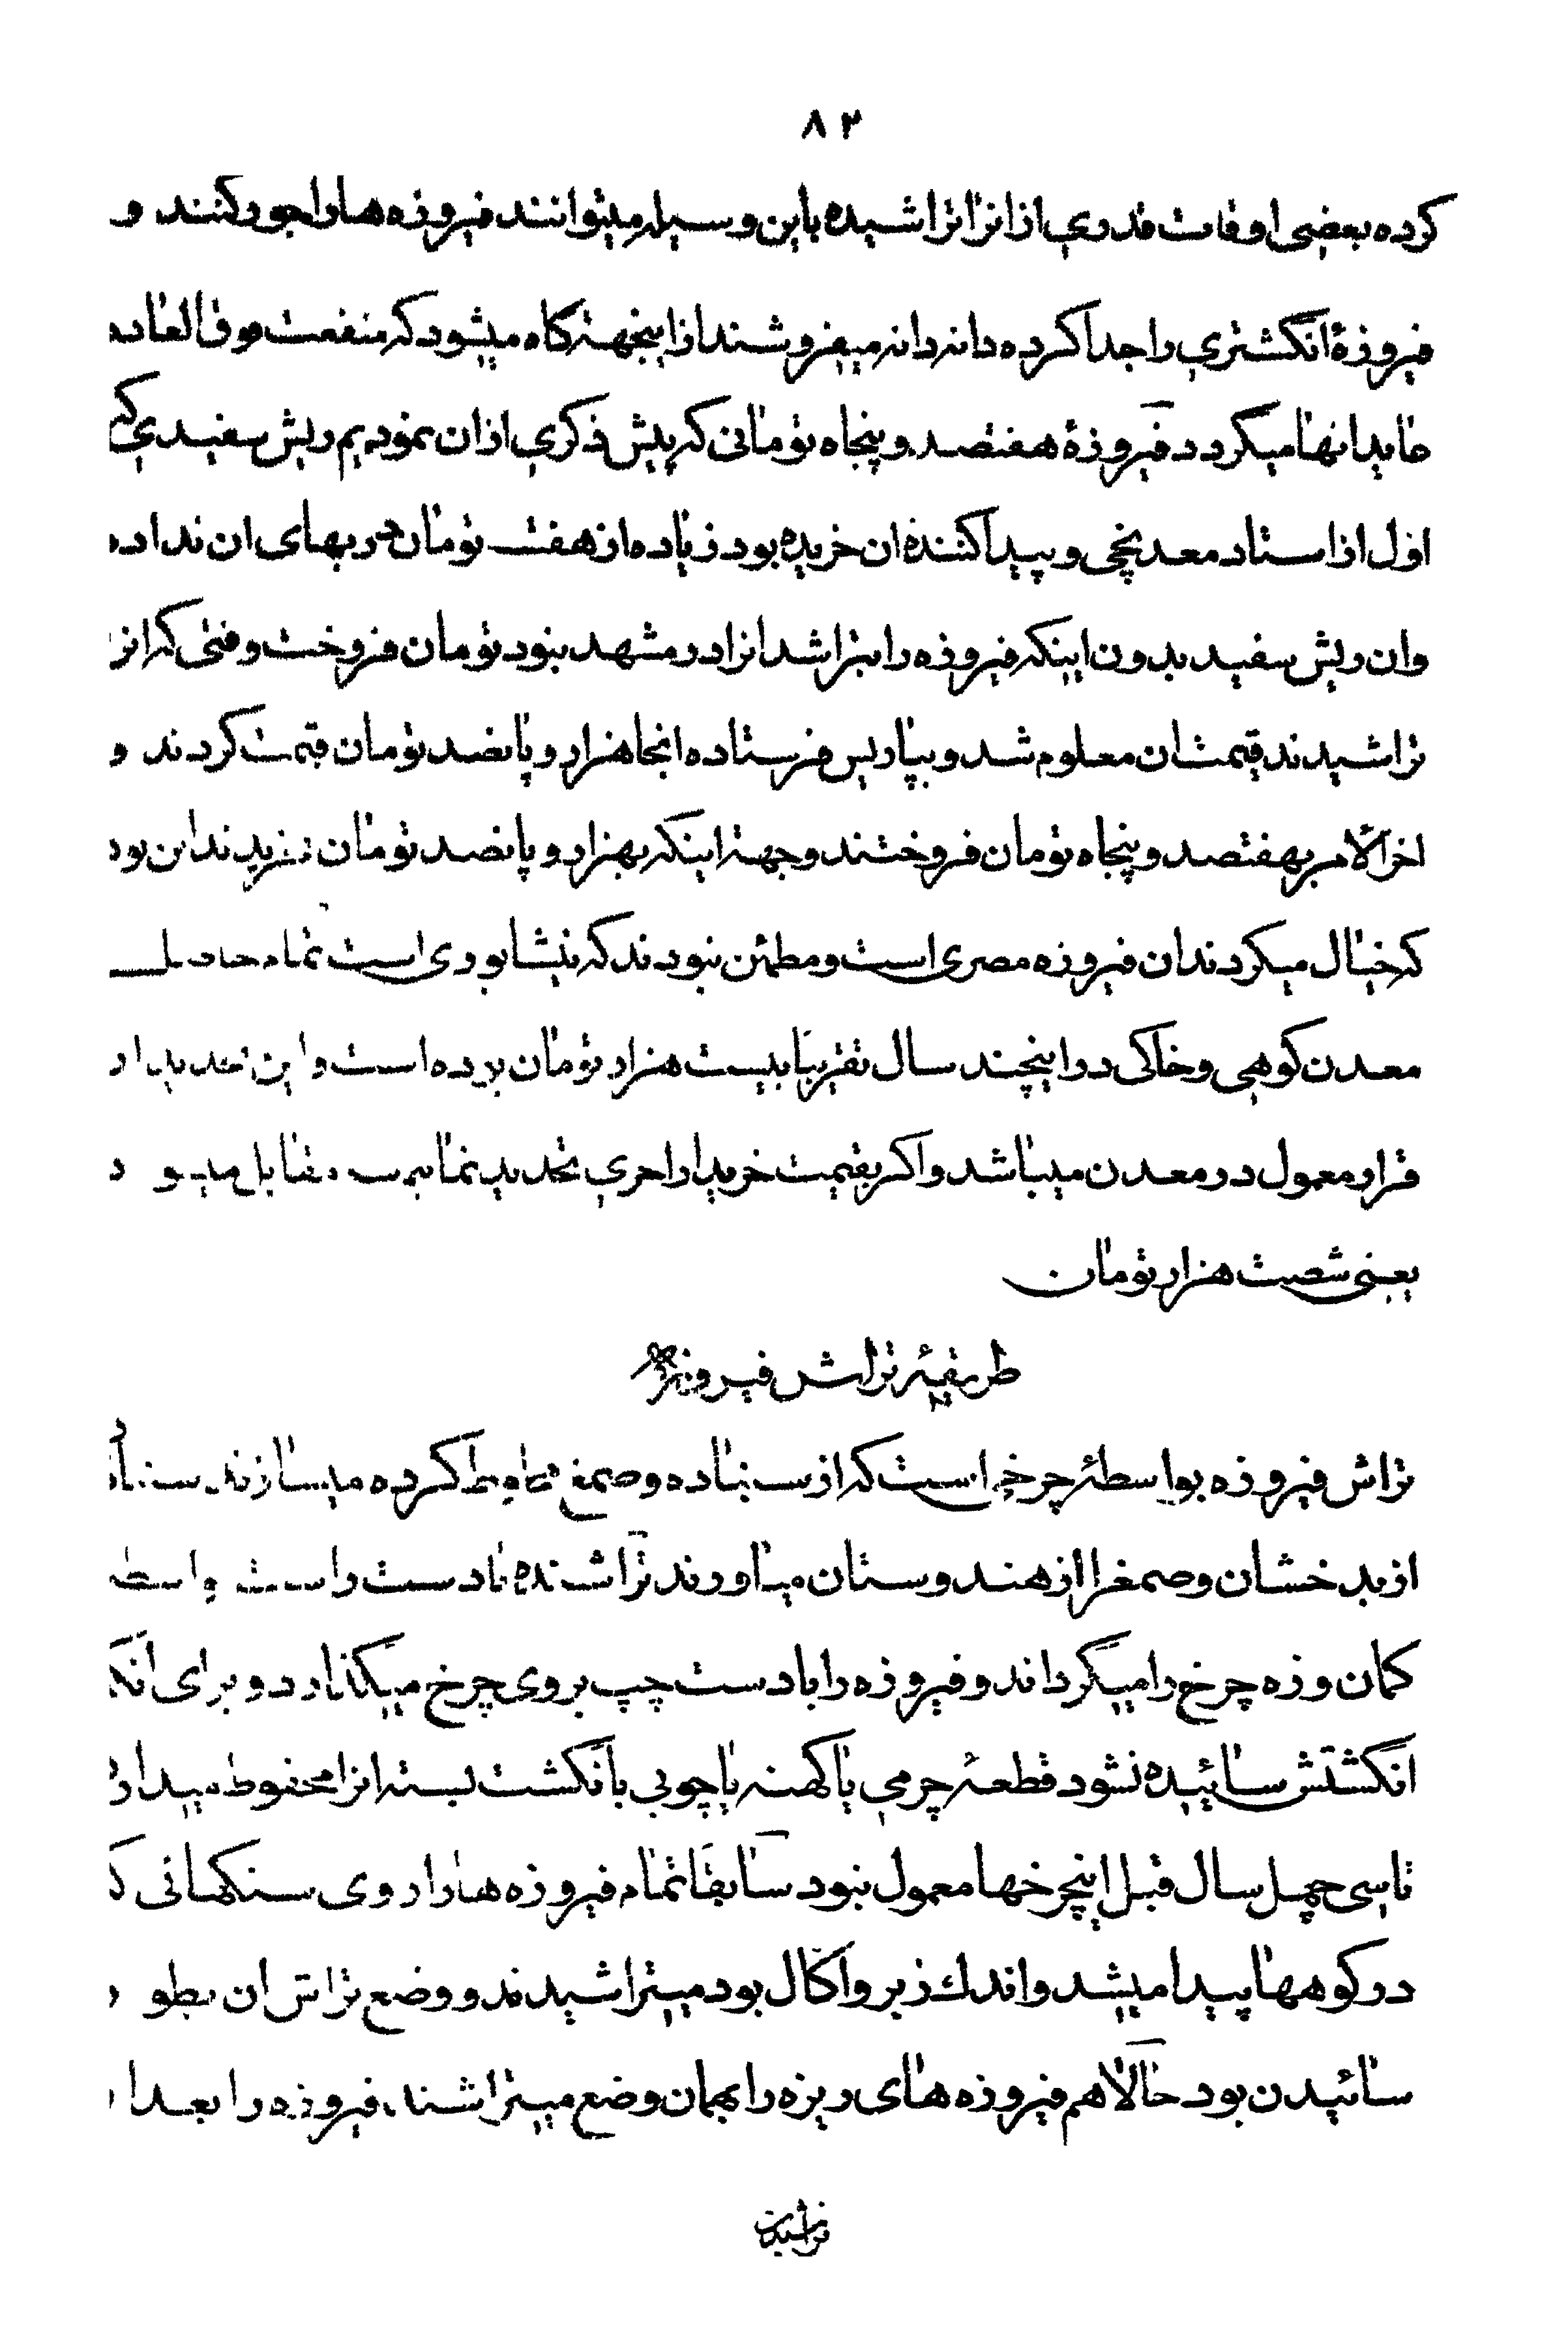 ٨٢
کرده بعضی اوقات قدری از انرا تراشیده باین وسیله میتوانند فیروزه هارا جور کنند و
فیروزهٔ انگشتری را جدا کرده دانه دانه میفروشند ازاینجهته کاه میشود که منفعت فوق العاده
عاید انها میکردد فیروزهٔ هفتصد و پنجاه تومانی که پیش ذکری ازان نمودیم ریش سفیدی که
اول از استاد معدنچی و پیدا کننده ان خریده بود زیاده از هفت تومان در بهای ان نداده
وان ریش سفید بدون اینکه فیروزه را بتراشد انرا در مشهد بنود تومان فروخت وقتی که انر
تراشیدند قیمت ان معلوم شد و بپاریس فرستاده انجا هزار و پانصد تومان قیمت کردند و
اخرالامر بهفتصد و پنجاه تومان فروختند وجهة اینکه بهزار و پانصد تومان نخریدند این بود
که خیال میکردند ان فیروزه مصری است و مطمئن نبودند که نیشابوری است تمام حاصل
معدن کوهی و خاکی در اینچند سال تقریباً بیست هزار تومان برده است و این تحدید از
قرار معمول در معدن میباشد و اکر بقیمت خریدار اخری تحدید نمائیم سه مقابل میو د
یعنی شصت هزار تومان
طریقهٔ تراش فیروزه
تراش فیروزه بواسطهٔ چرخی است که از سنباده و صمغ مخلوط کرده میسازند سنباده
از بدخشان و صمغرا از هندوستان میاورند تراشنده با دست راست بواسطه
کمان و زه چرخ را میگرداند و فیروزه را با دست چپ بروی چرخ میکذارد و برای انکه
انگشتش سائیده نشود قطعهٔ چرمی یا کهنه یا چوبی بانگشت بسته انرا محفوظ میدارد
تا سی چهل سال قبل اینچرخها معمول نبود سابقاً تمام فیروزه هارا روی سنکهائی که
در کوهها پیدا میشد و اندك زبر و اکّال بود میتراشیدند و وضع تراش ان بطور
سائیدن بود حالا هم فیروزه های ریزه را بهمان وضع میتراشند فیروزه را بعد از
تراشیدن